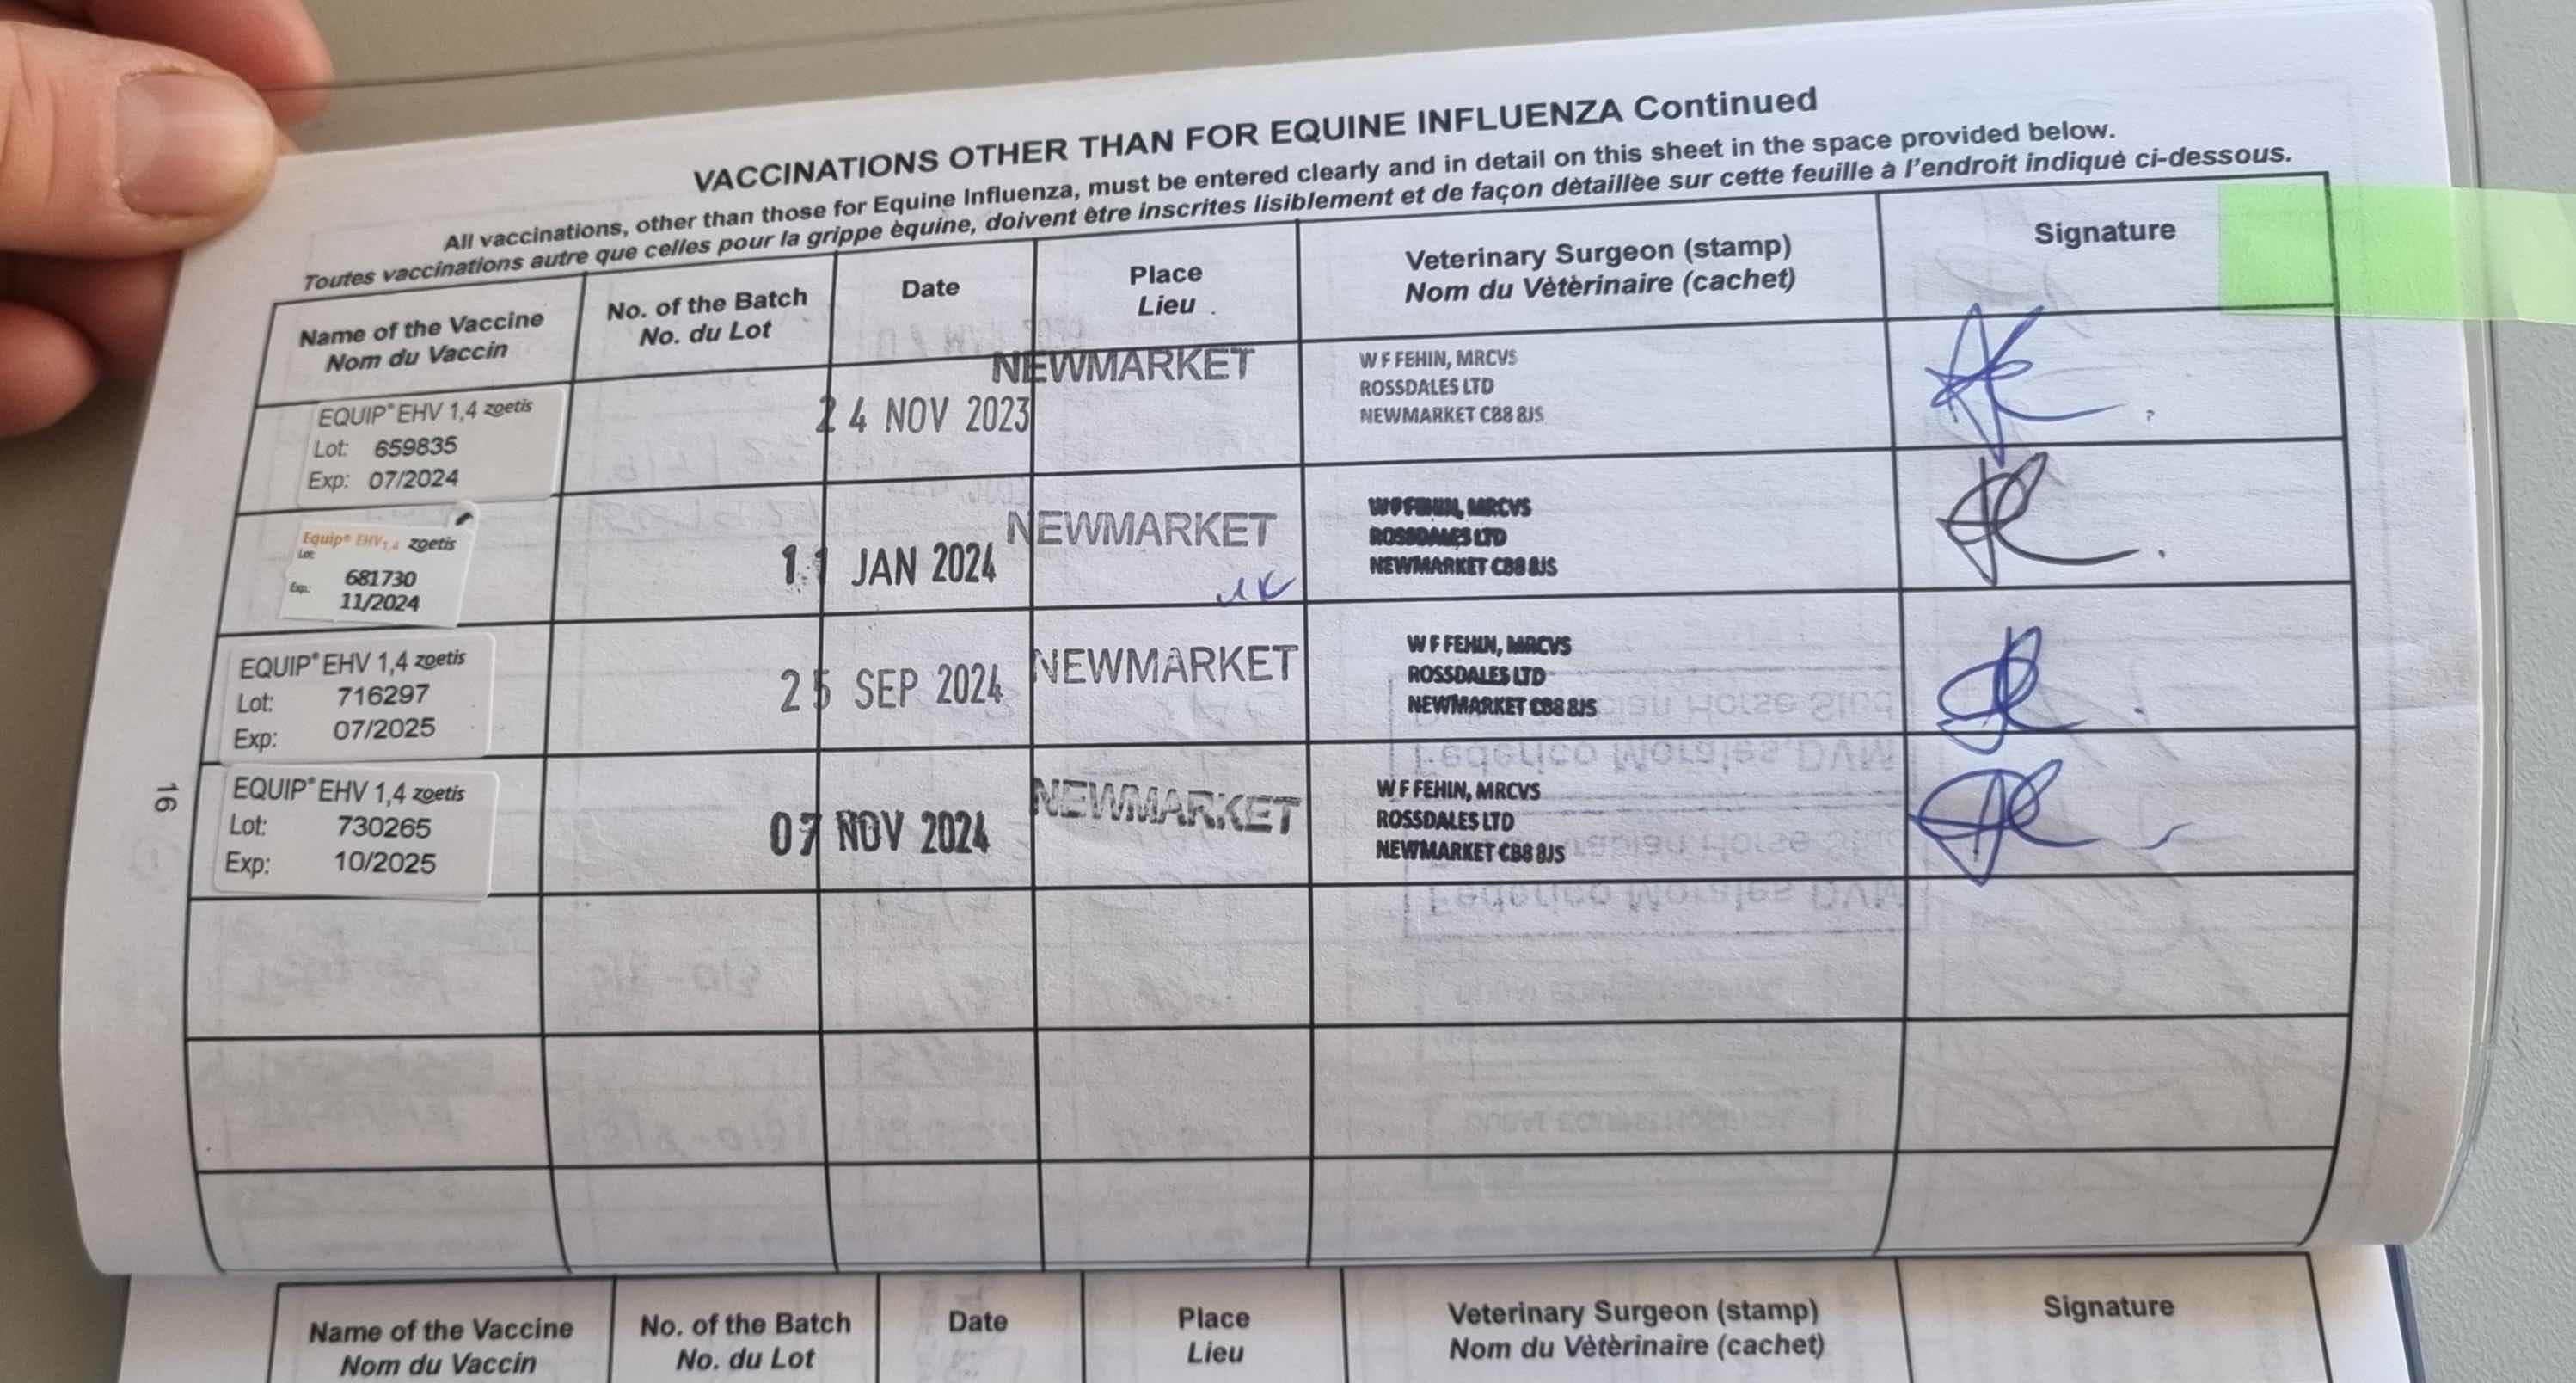 VACCINATIONS OTHER THAN FOR EQUINE INFLUENZA Continued
All vaccinations, other than those for Equine Influenza, must be entered clearly and in detail on this sheet in the space provided below.
Toutes vaccinations autre que celles pour la grippe èquine, doivent être inscrites lisiblement et de façon dètaillèe sur cette feuille à l'endroit indiquè ci-dessous.
Name of the Vaccine
Nom du Vaccin
No. of the Batch
No. du Lot
Date
Place
Lieu
Veterinary Surgeon (stamp)
Nom du Vètèrinaire (cachet)
Signature
EQUIP® EHV 1,4 zoetis
Lot: 659835
Exp: 07/2024
24 NOV 2023
NEWMARKET
W F FEHIN, MRCVS
ROSSDALES LTD
NEWMARKET CB8 8JS
Equip® EHV1,4 zoetis
Lot:
681730
Exp: 11/2024
11 JAN 2024
NEWMARKET
UK
W F FEHIN, MRCVS
ROSSDALES LTD
NEWMARKET CB8 8JS
EQUIP® EHV 1,4 zoetis
Lot: 716297
Exp: 07/2025
25 SEP 2024
NEWMARKET
W F FEHIN, MRCVS
ROSSDALES LTD
NEWMARKET CB8 8JS
EQUIP® EHV 1,4 zoetis
Lot: 730265
Exp: 10/2025
07 NOV 2024
NEWMARKET
W F FEHIN, MRCVS
ROSSDALES LTD
NEWMARKET CB8 8JS
16
Name of the Vaccine
Nom du Vaccin
No. of the Batch
No. du Lot
Date
Place
Lieu
Veterinary Surgeon (stamp)
Nom du Vètèrinaire (cachet)
Signature